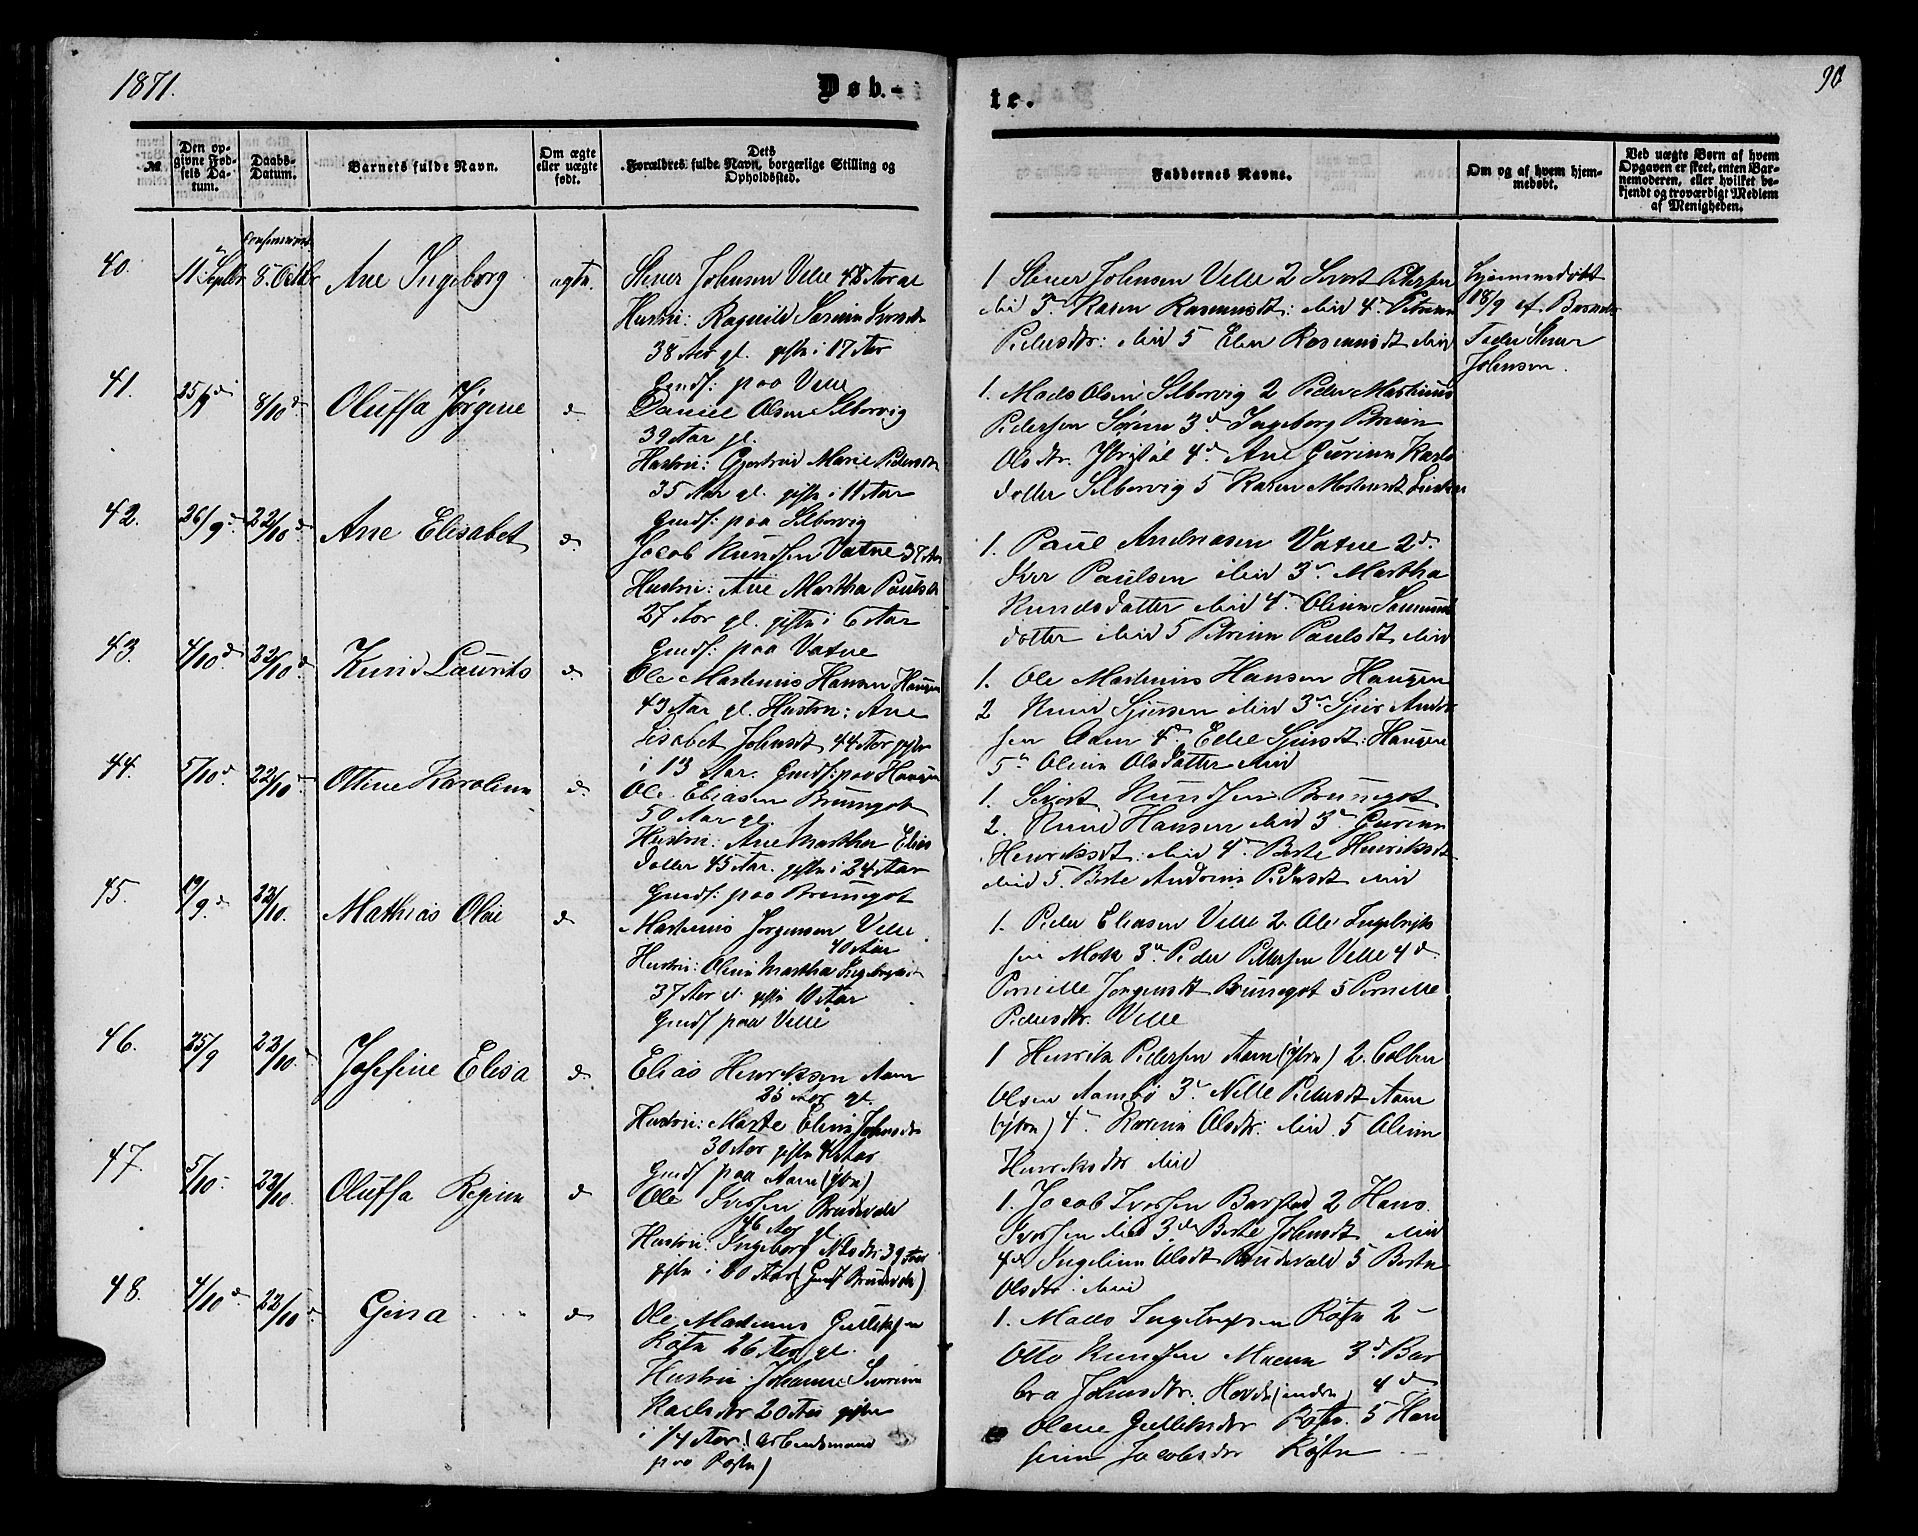 1871.
Døb-
te.
90
№
Den op-
givne Fød-
sels Da-
tum.
Daabs-
Datum.
Barnets fulde Navn.
Om ægte
eller uægte
født.
Dets
Forældres fulde Navn, borgerlige Stilling og
Opholdssted.
Faddernes Navne.
Om og af hvem hjem-
medøbt.
Ved uægte Børn af hvem
Opgaven er skeet, enten Bar-
nemoderen, eller hvilket be-
kjendt og troværdigt Medlem
af Menigheden.
40.
11 Septbr
8. Octbr
Ane Ingeborg
ægte.
Stener Johnsen Velle 48 Aar gl
Hustru: Ragnild
38 Aar gl. gifte i 17 Aar
Gmdf: paa Velle
1 Stener Johnsen Velle 2 Sivert Petersen
ibid 3. Karen Rasmusdt: ibid 4. Petrine
Pedersdtr: ibid 5 Rasmusdt ibid
Hjemmedøbt
18/9 af Barnets
Fader Stener
Johnsen.
41.
25/9
8/10
Oluffa Jørgine
d.
Daniel Olsen Selbervig
39 Aar gl.
Hustru: Gjertrud Marie Pedersdt
35 Aar gl. gifte i 11 Aar
Gmdf: paa Selbervig
1. Mads Olsen Selbervig 2 Peder Martinus
Pedersen 3. Ingeborg Petrine
Olsdtr. 4. Ane Gurine Karls
datter Selbervig 5 Karen
42.
26/9
22/10
Ane Elisabet
d.
Jacob Knudsen Vatne 37 Aar
Hustru: Ane Martha Paulsdt
27 Aar gl. gifte i 6 Aar
Gmdf: paa Vatne
1. Paul Andreasen Vatne 2
Iver Paulsen ibid 3 Martha
Knudsdatter ibid 4. Oline
datter ibid 5 Petrine Paulsdt ibid
43.
4/10
22/10
Knud Laurits
d.
Ole Martinus Hansen Haugen
43 Aar gl. Hustru: Ane
Lisabet Johnsdt 44 Aar gifte
i 13 Aar. Gmdf: paa Haugen
1. Ole Martinus Hansen Haugen
2 Knud Sjursen ibid 3 Sjur Ander
sen Aam 4 Edle Sjursdt: Haugen
5 Oline Olsdatter ibid
44.
5/10
22/10
Ottine Karoline
d.
Ole Eliasen Brungot
50 Aar gl.
Hustru: Ane Martha Elias
datter 45 Aar. gifte i 24 Aar
Gmdf: paa Brungot
1. Sivert Knudsen Brungot
2. Knud Hansen ibid 3 Gurine
Henriksdt: ibid 4. Berte Henriksdt
ibid 5. Berte Andrine Pedersdt ibid
45.
19/9
22/10.
Mathias Olai
d.
Martinus Jørgensen Velle
40 Aar
Hustru: Oline Martha
37 Aar gl. gifte 10 Aar
Gmdf paa Velle
1. Peder Eliasen Velle 2. Ole Ingebrigt
sen Mork 3 Peder Pettersen Velle 4
Pernille Jørgensdt Brungot 5 Pernille
Pedersdtr. Velle
46.
25/9
22/10
Josefine Elisa
d.
Elias Henriksen Aam
25 Aar gl.
Hustru: Marte Eline Johnsdtr
30 Aar gifte 4 Aar
Gmdf paa Aam (ytre)
1 Henrik Pedersen Aam (ytre) 2. Colben
Olsen 3. Nille Pedersdt Aam
(ytre) 4. Karen Olsdtr. ibid. 5 Oline
Henriksdtr ibid
47.
5/10
22/10
Oluffa Regine
d.
Ole Iversen Brudevold
46 Aar gl
Hustru: Ingeborg Nilsdtr. 39 Aar
gifte i 20 Aar (Gmdf Brudevold)
1. Jacob Iversen Barstad 2 Hans
Iversen ibid 3 Berte Johnsdt ibid
4 Ingeline Olsdt Brudevold 5 Berte
Olsdtr. ibid
48.
4/10
22/10
Gina
d.
Ole Martinus Gulliksen
Røfte 26 Aar gl.
Hustru: Johanne Severine
Karlsdtr 20 Aar gifte
i 1/4 Aar (Arbeidsmand
paa Røfte)
1. Mads Ingebrigtsen Røfte 2
Otto Knudsen 3. Bar
bra Johnsdtr. Hovde (indre) 4
Olave Gulliksdtr Røfte. 5 Han
sine Jacobsdtr Røfte